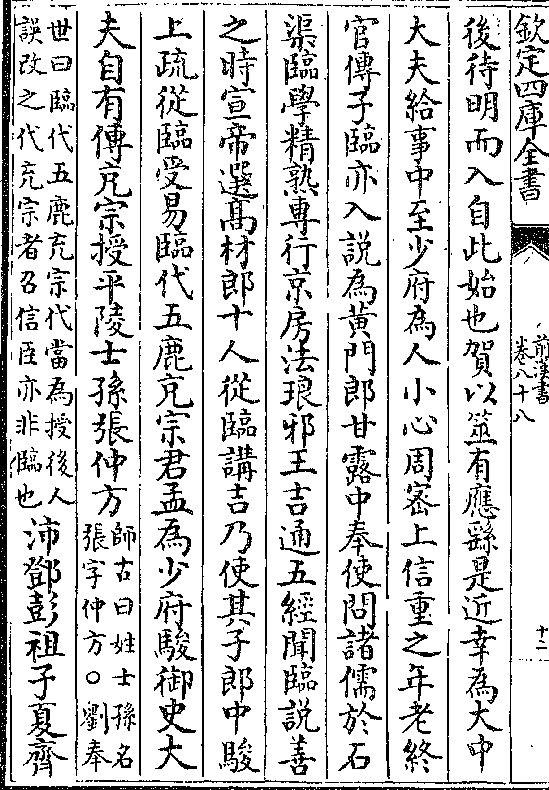 欽定四庫全書
前漢書
卷八十八
十二
後待明而入自此始也賀以筮有應繇是近幸為大中
大夫給事中至少府為人小心周宻上信重之年老終
官傳子臨亦入說為黃門郎甘露中奉使問諸儒於石
渠臨學精熟專行京房法琅邪王吉通五經聞臨說善
之時宣帝選髙材郎十人從臨講吉乃使其子郎中駿
上疏從臨受易臨代五鹿充宗君孟為少府駿御史大
夫自有傳充宗授平陵士孫張仲方
師古曰姓士孫名
張字仲方○劉奉
世曰臨代五鹿充宗代當為授後人
誤改之代充宗者召信臣亦非臨也
沛鄧彭祖子夏齊